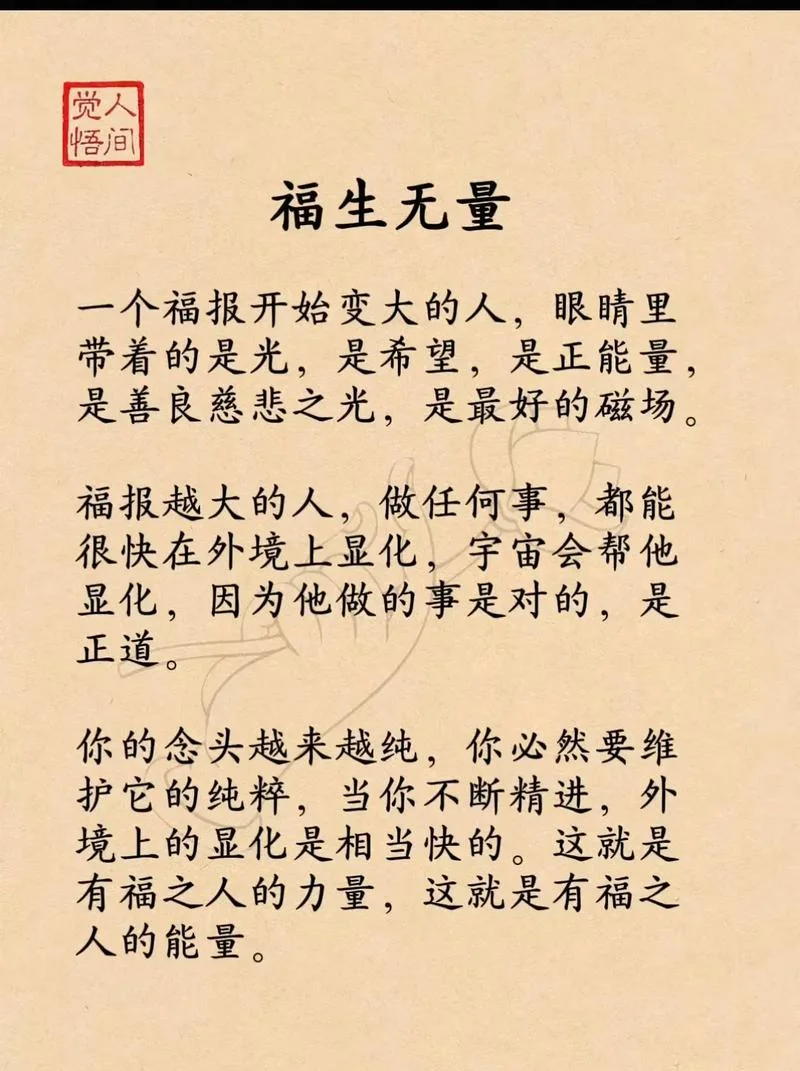 人间
觉悟
福生无量
一个福报开始变大的人，眼睛里
带着的是光，是希望，是正能量，
是善良慈悲之光，是最好的磁场。
福报越大的人，做任何事，都能
很快在外境上显化，宇宙会帮他
显化，因为他做的事是对的，是
正道。
你的念头越来越纯，你必然要维
护它的纯粹，当你不断精进，外
境上的显化是相当快的。这就是
有福之人的力量，这就是有福之
人的能量。